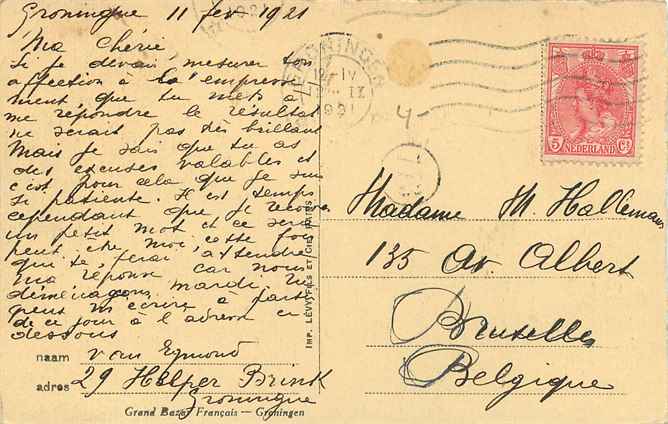 Groningue 11 fev 1921
Ma Chérie
Si je devais mesurer ton
affection à l'empresse
ment que tu mets à
me répondre le résultat
ne serait pas très brillant
Mais je sais que tu as
des excuses valables et
c'est pour cela que je suis
si patiente. Il est temps
cependant que je reçoive
un petit mot et ce sera
peut être moi cette fois
qui te ferai attendre
ma réponse car nous
déménageons mardi. Tu
peux m'écrire à partir
de ce jour à l'adresse ci
dessous
naam van Egmond
adres 29 Helper Brink
Groningue
Grand Bazar Français — Groningen
IMP. LEVY FILS ET CIE PARIS
GRONINGEN
12 IV
IX
1921
4-
5 Ct
NEDERLAND
Madame M. Hallemans
135 Av. Albert
Bruxelles
Belgique